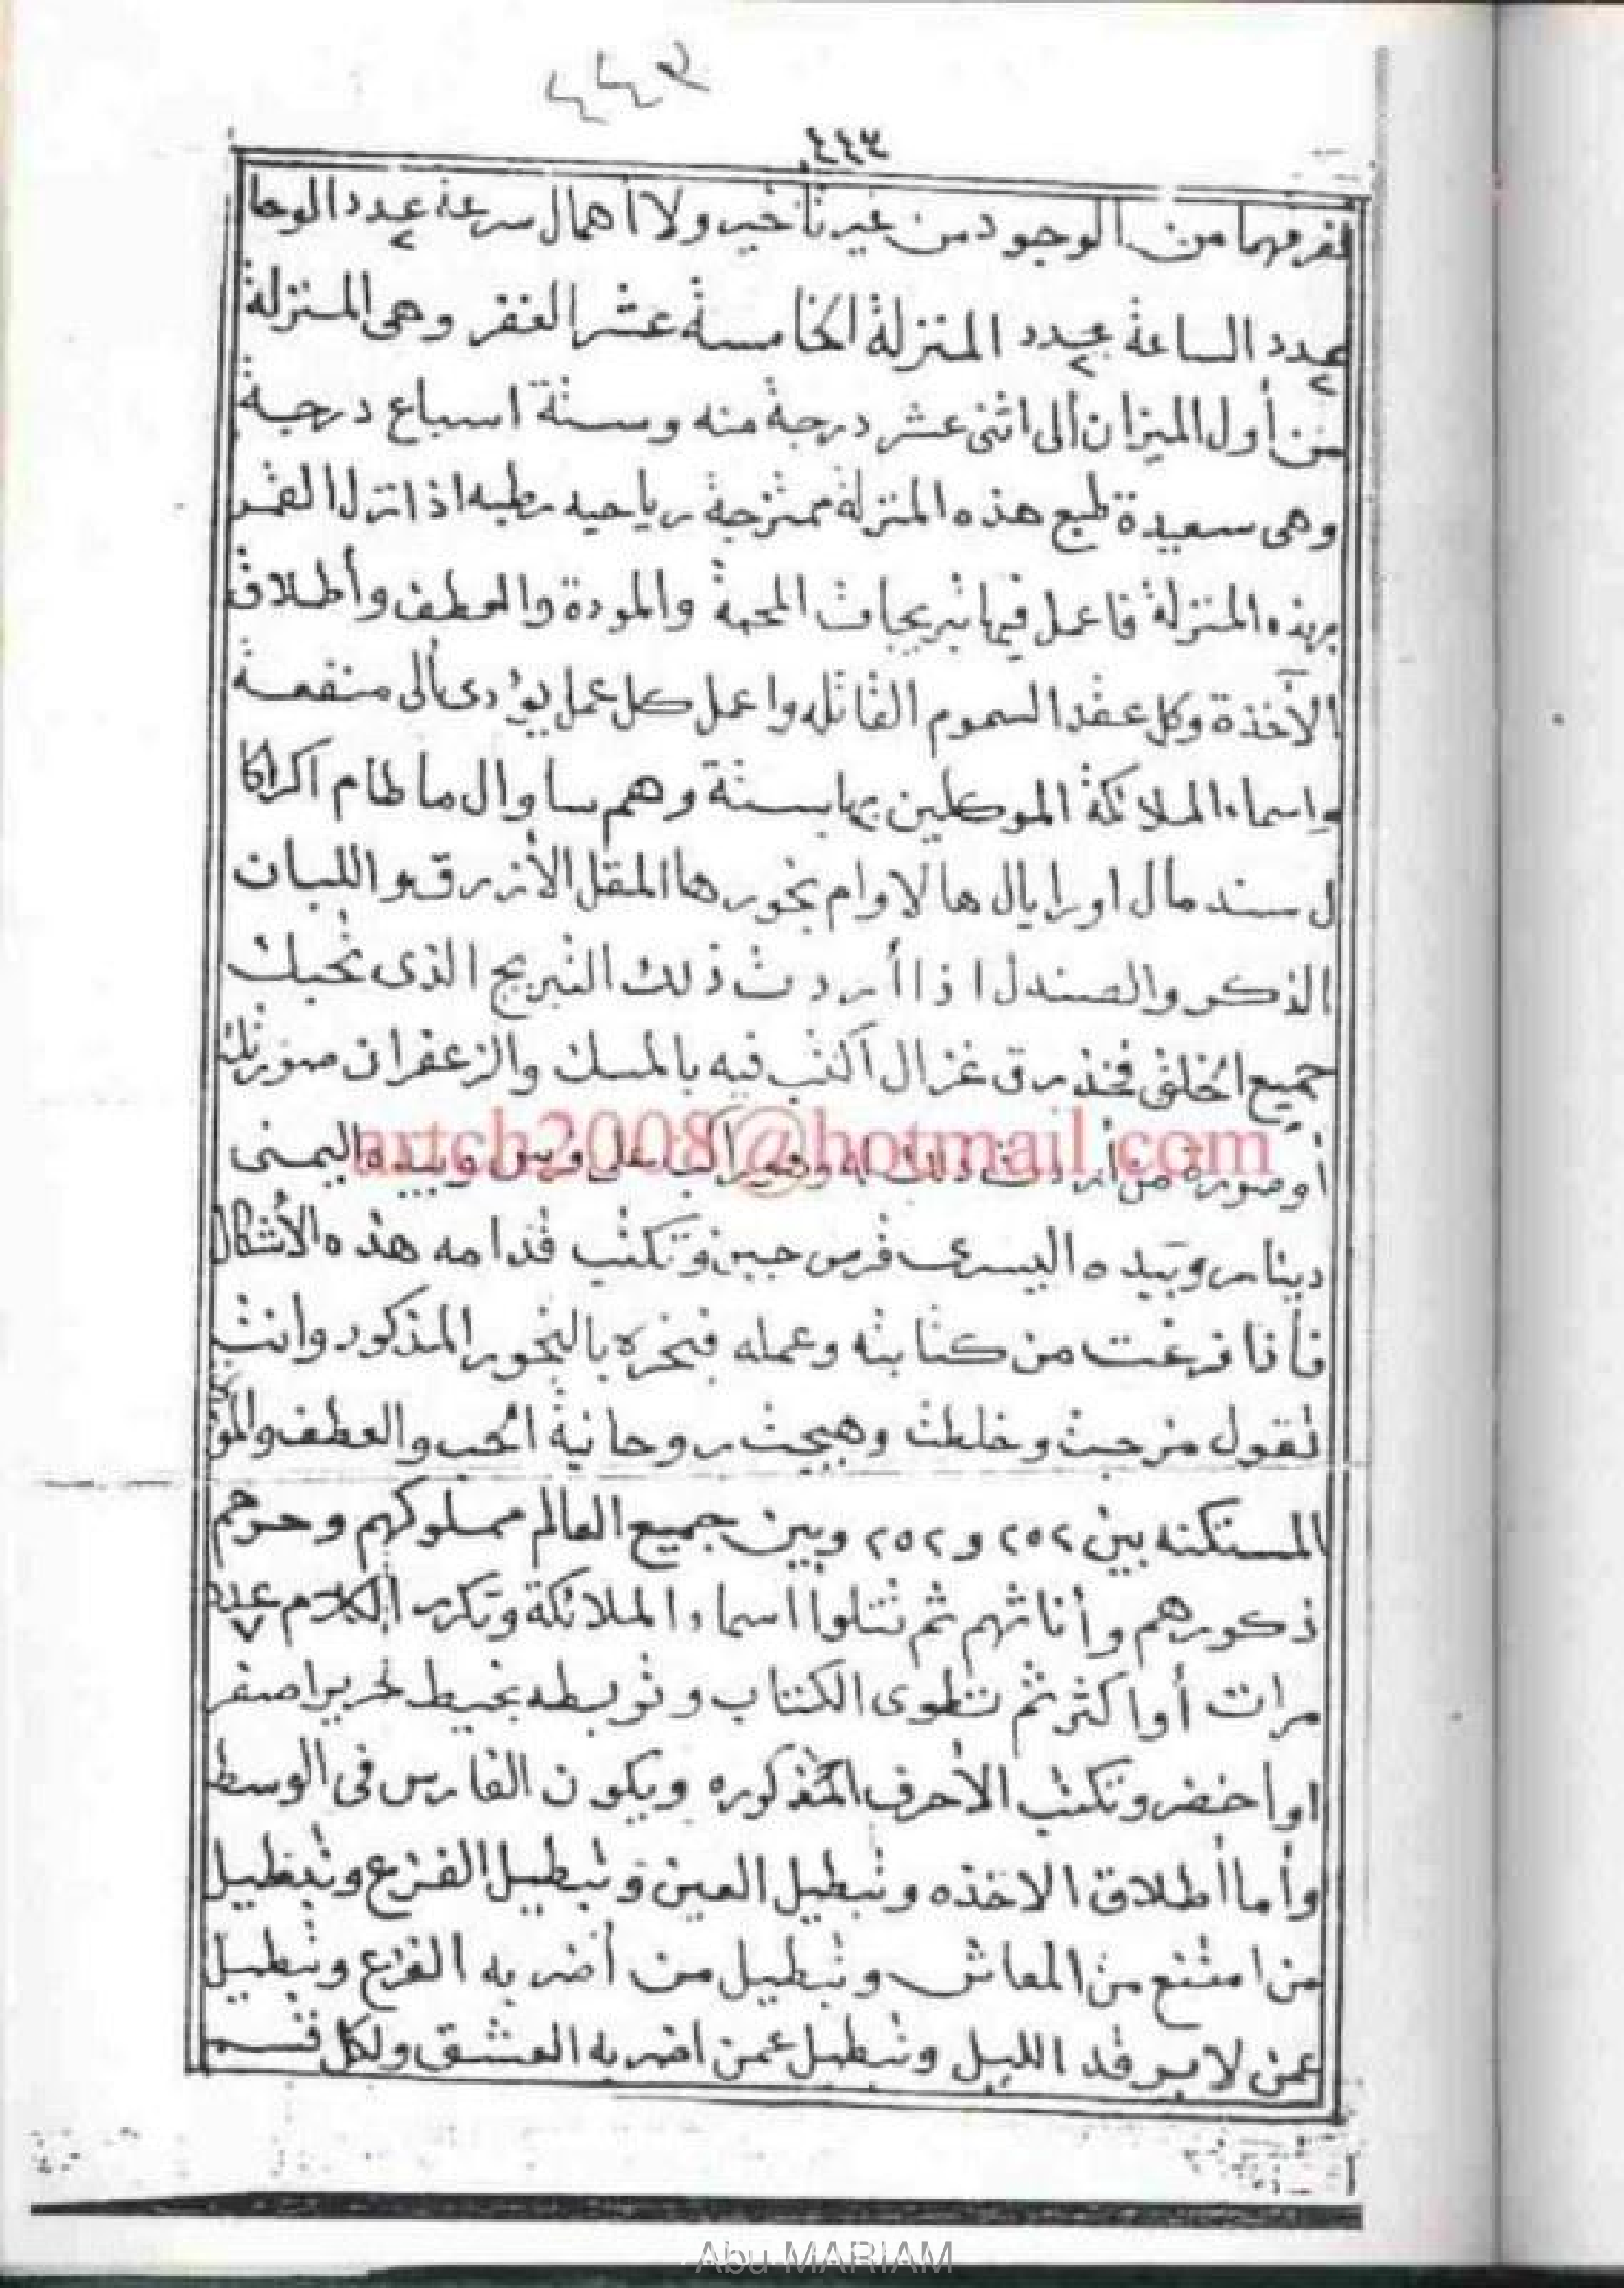 ٤٤٣
٤٤٣
من الوجود من غير تأخير ولا أهمال سرعة عدد الوحا
عدد الساعة عدد المنزلة الخامسة عشر الغفر وهى المنزلة
من أول الميزان ألى اثنى عشر درجة منه وستة اسباع درجة
وهى سعيدة طبع هذه المنزلة ممتزجة رياحيه رطبه اذا نزل القمر
بهذه المنزلة فاعمل فيها نيريجات المحبة والمودة والعطف وأطلاق
الآخذة وكل عقد السموم القاتله واعمل كل عمل يؤدى ألى منفعة
واسماء الملائكة الموكلين بها ستة وهم ساوال ماطام اكراكا
ل سندمال اورايال هالاوام بخورها المقل الأزرق واللبان
الذكر والصندل اذا أردت ذلك النيريج الذى تحبك
جميع الخلق فخذ رق غزال اكتب فيه بالمسك والزعفران صورتك
أو صورة من أردت ذلك له وهو راكب على فرس وبيده اليمنى
artch2008@hotmail.com
دينار وبيده اليسرى قرص جبن وتكتب قدامه هذه الأشكال
فأذا فرغت من كتابته وعمله فبخره بالبخور المذكور وانت
تقول مزجت وخلطت وهيجت روحانية الحب والعطف
المستكنه بين ٢٥٢ و ٢٥٢ وبين جميع العالم مملوكهم وحرهم
ذكورهم وأناثهم ثم تتلوا اسماء الملائكة وتكرر الكلام عدد ٧
مرات أو اكثر ثم تطوى الكتاب وتربطه بخيط حرير اصفر
او أخضر وتكتب الأحرف المذكوره ويكون الفارس فى الوسط
وأما أطلاق الاخذه وتبطيل العين وتبطيل الفزع وتبطيل
من امتنع من المعاش وتبطيل من أضر به الفزع وتبطيل
عن لا يرقد الليل وتبطيل عمن اضر به العشق ولكل قسم
Abu MARIAM